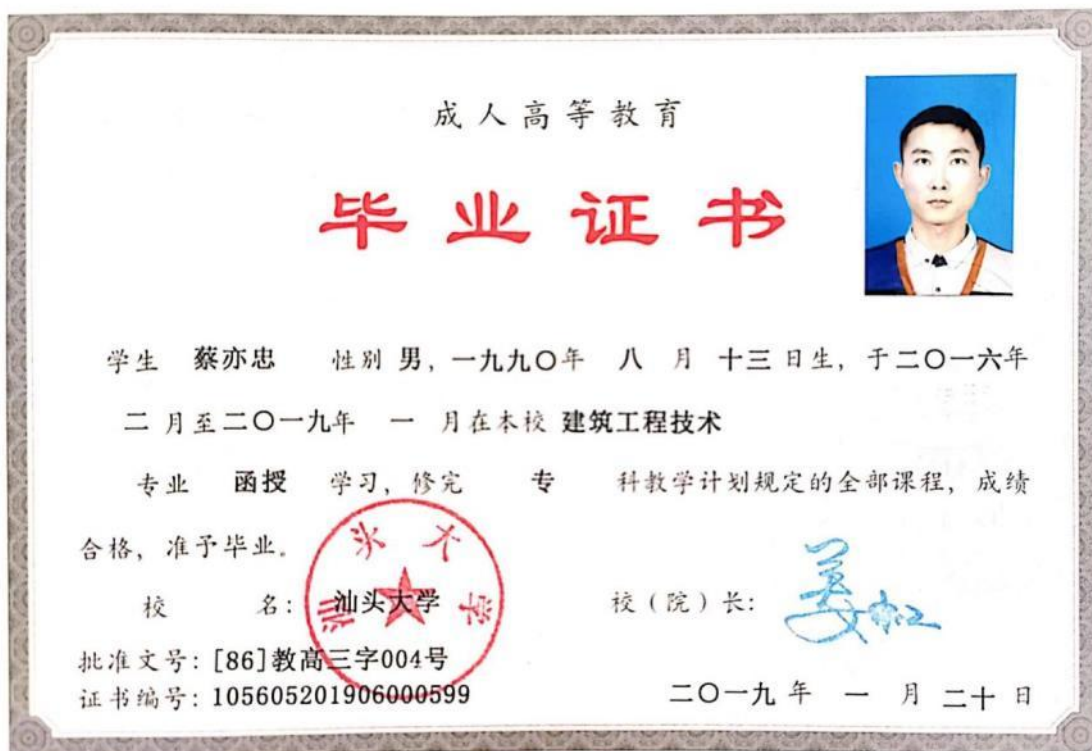 成人高等教育
毕业证书
学生 蔡亦忠 性别 男，一九九〇年 八 月 十三 日生，于二〇一六年
二 月至二〇一九年 一 月在本校 建筑工程技术
专业 函授 学习，修完 专 科教学计划规定的全部课程，成绩
合格，准予毕业。
汕头大学
校 名：汕头大学 校（院）长：
批准文号：[86]教高三字004号
证书编号：105605201906000599 二〇一九 年 一 月 二十 日